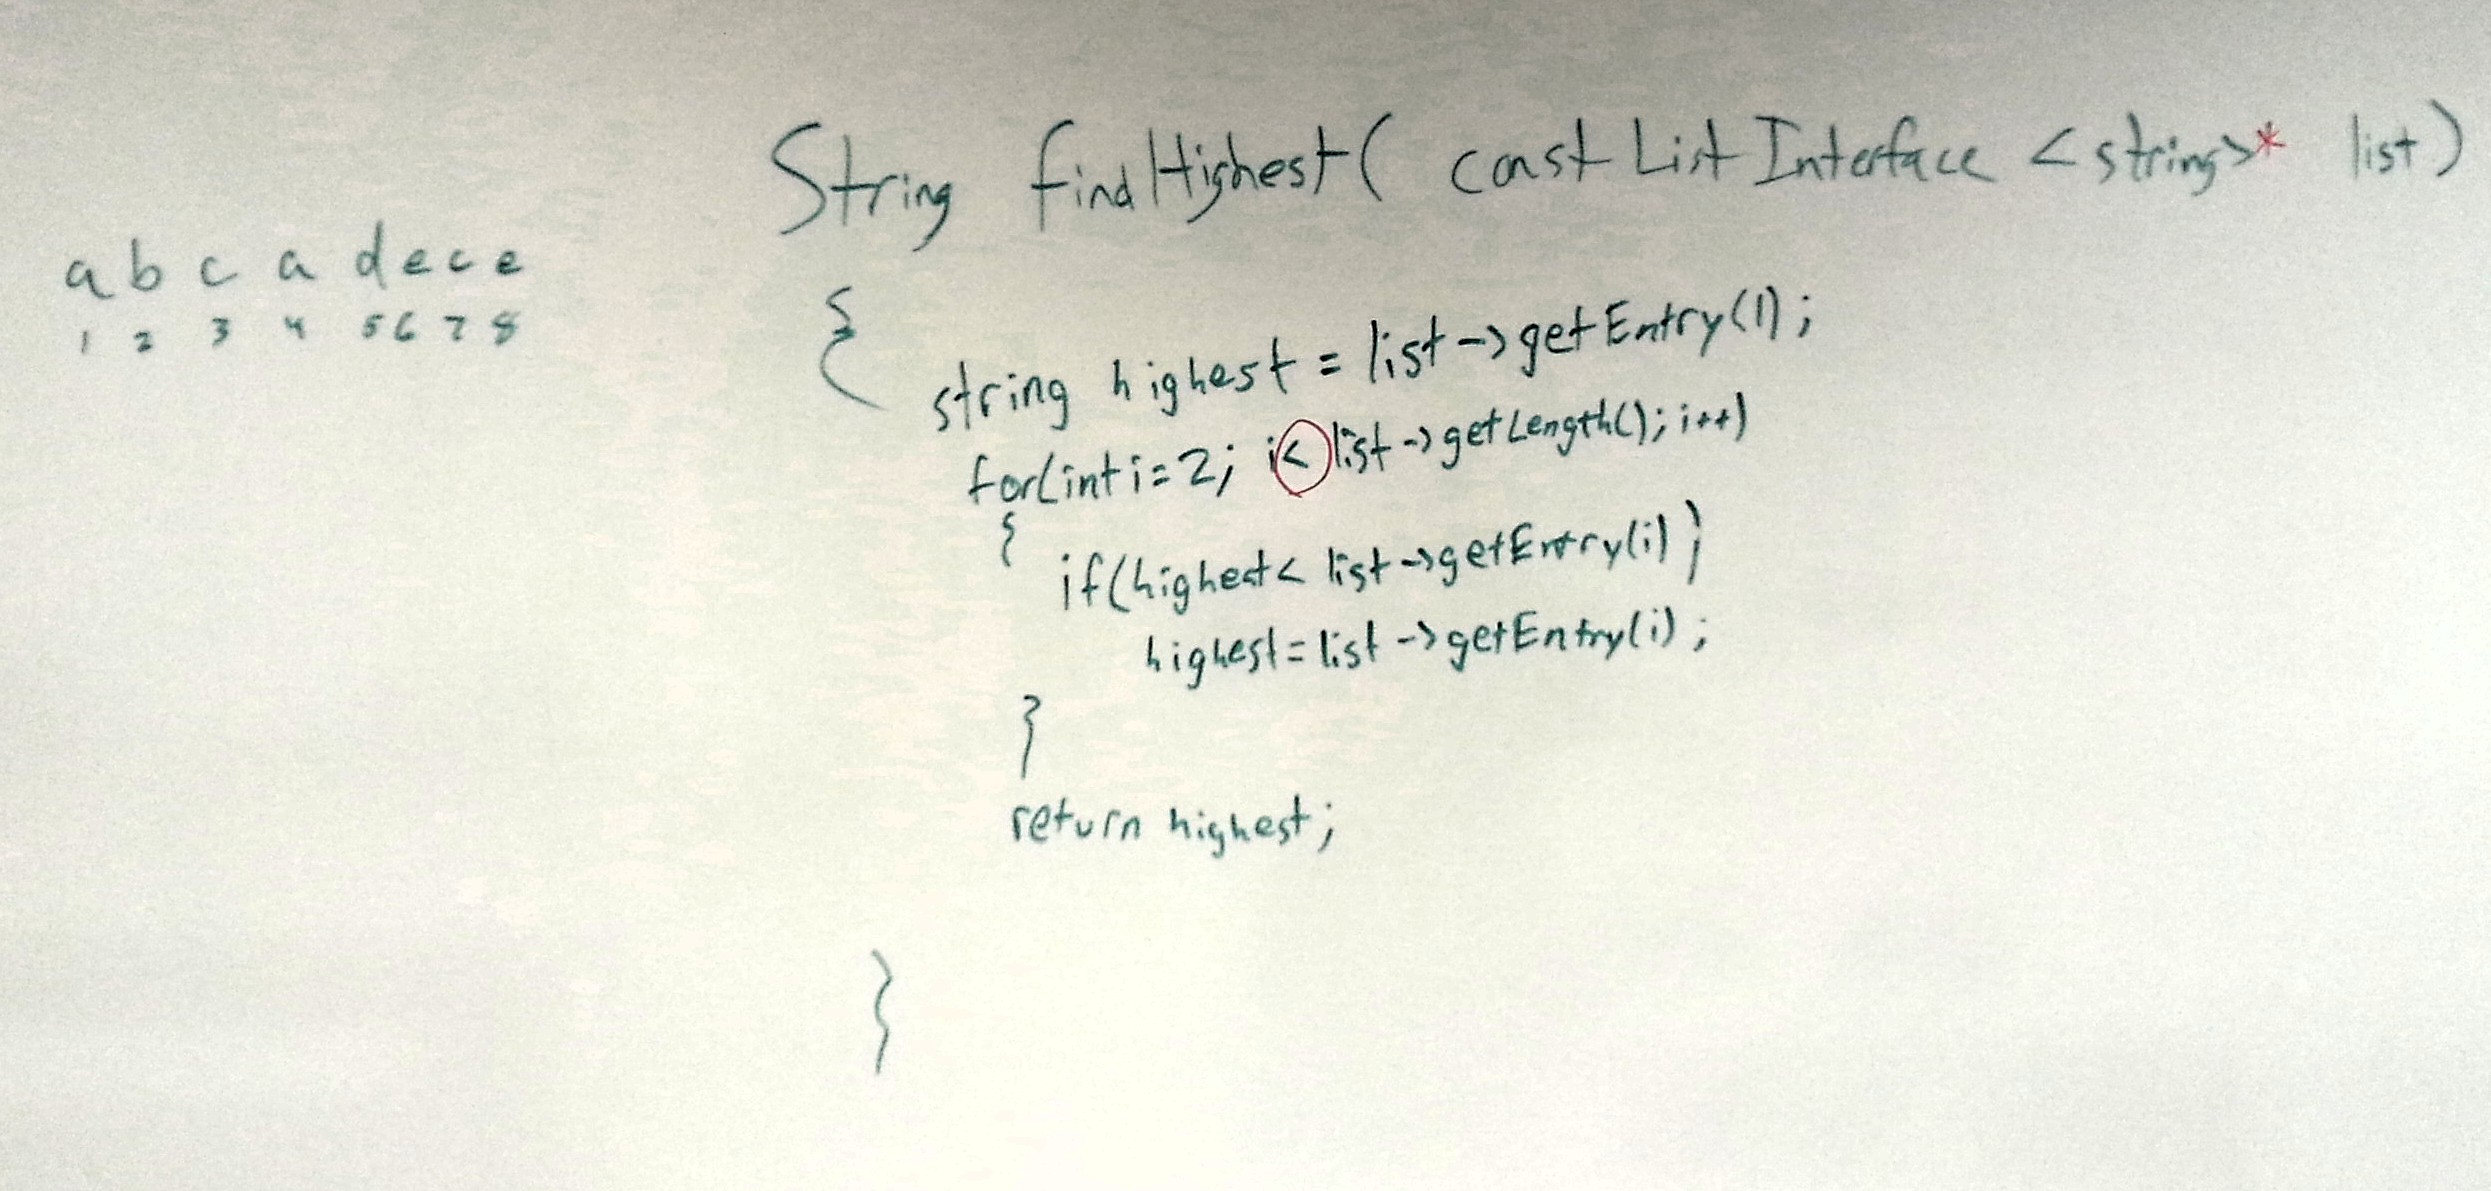 String findHighest( const ListInterface <string>* list)
a b c a d e c e
1 2 3 4 5 6 7 8
{
string highest = list->getEntry(1);
for(int i=2; i< list->getLength(); i++)
{
if(highest< list->getEntry(i))
highest=list->getEntry(i);
}
return highest;
}